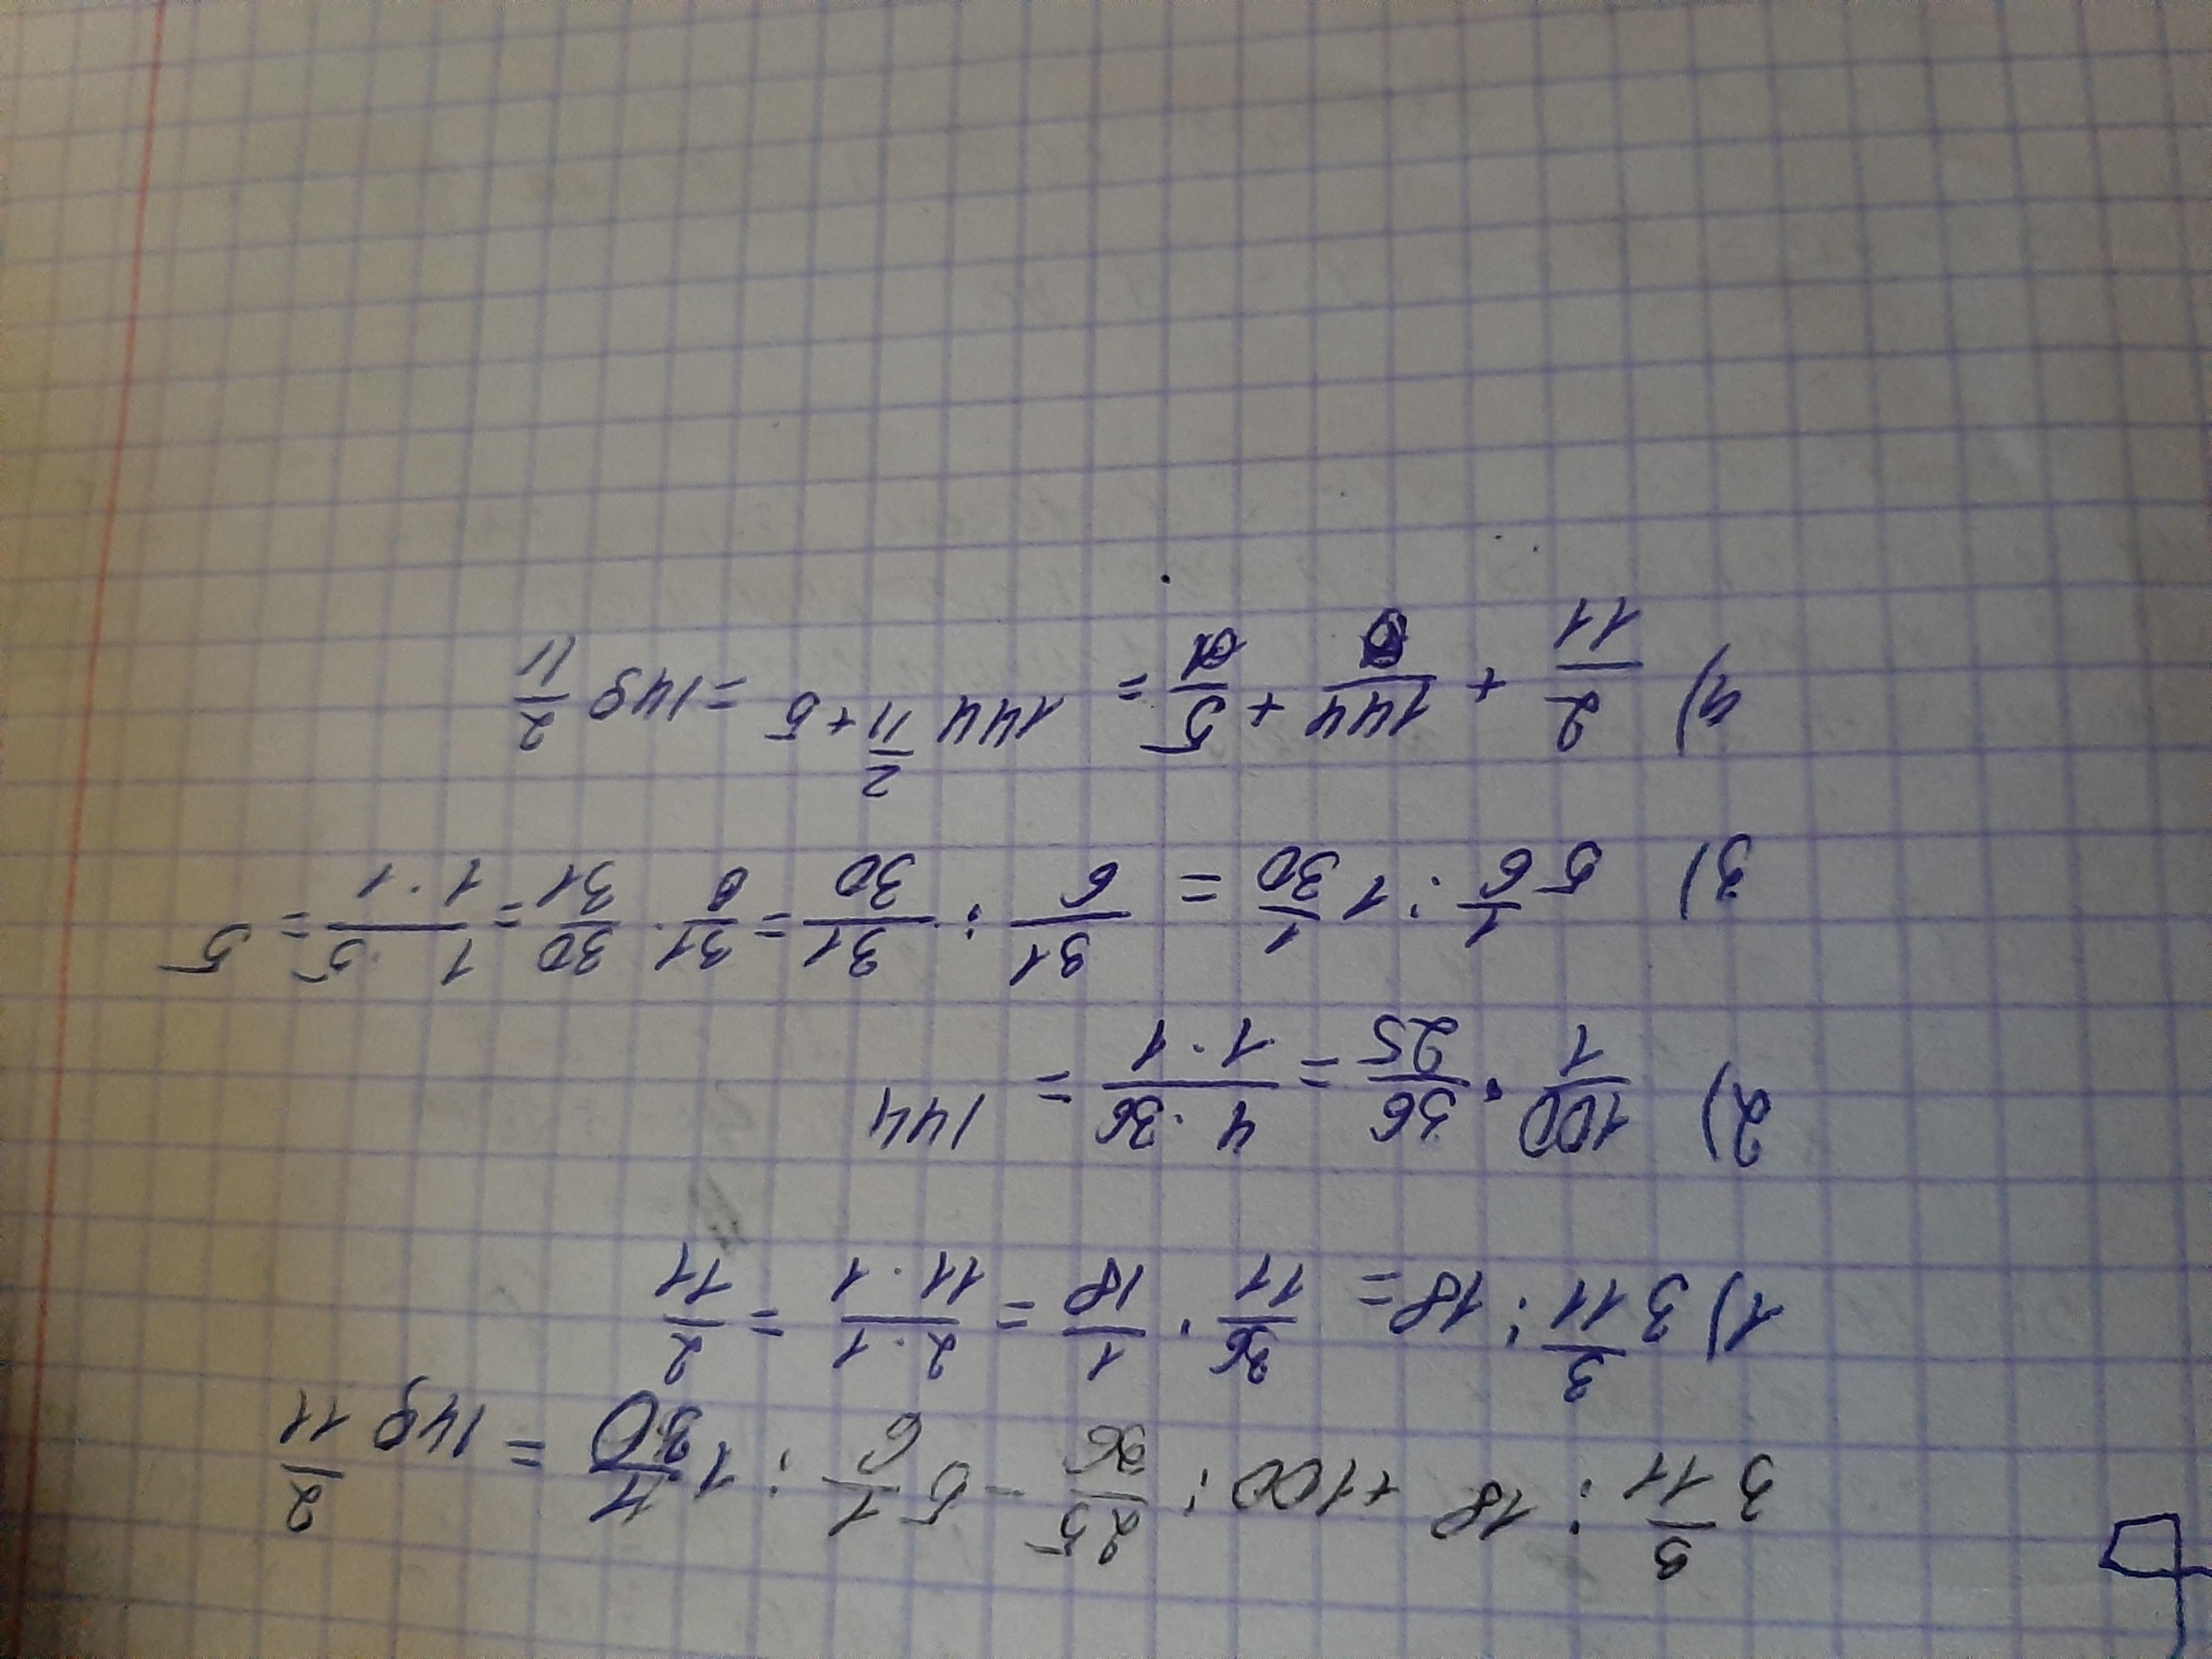 3 3/11 : 18 + 100 : 25/36 - 5 1/6 : 1 1/30 = 149 2/11
1) 3 3/11 : 18 = 36/11 · 1/18 = 2·1/11·1 = 2/11
2) 100/1 · 36/25 = 4·36/1·1 = 144
3) 5 1/6 : 1 1/30 = 31/6 : 31/30 = 31/6 · 30/31 = 1·5/1·1 = 5
4) 2/11 + 144 + 5 = 144 2/11 + 5 = 149 2/11